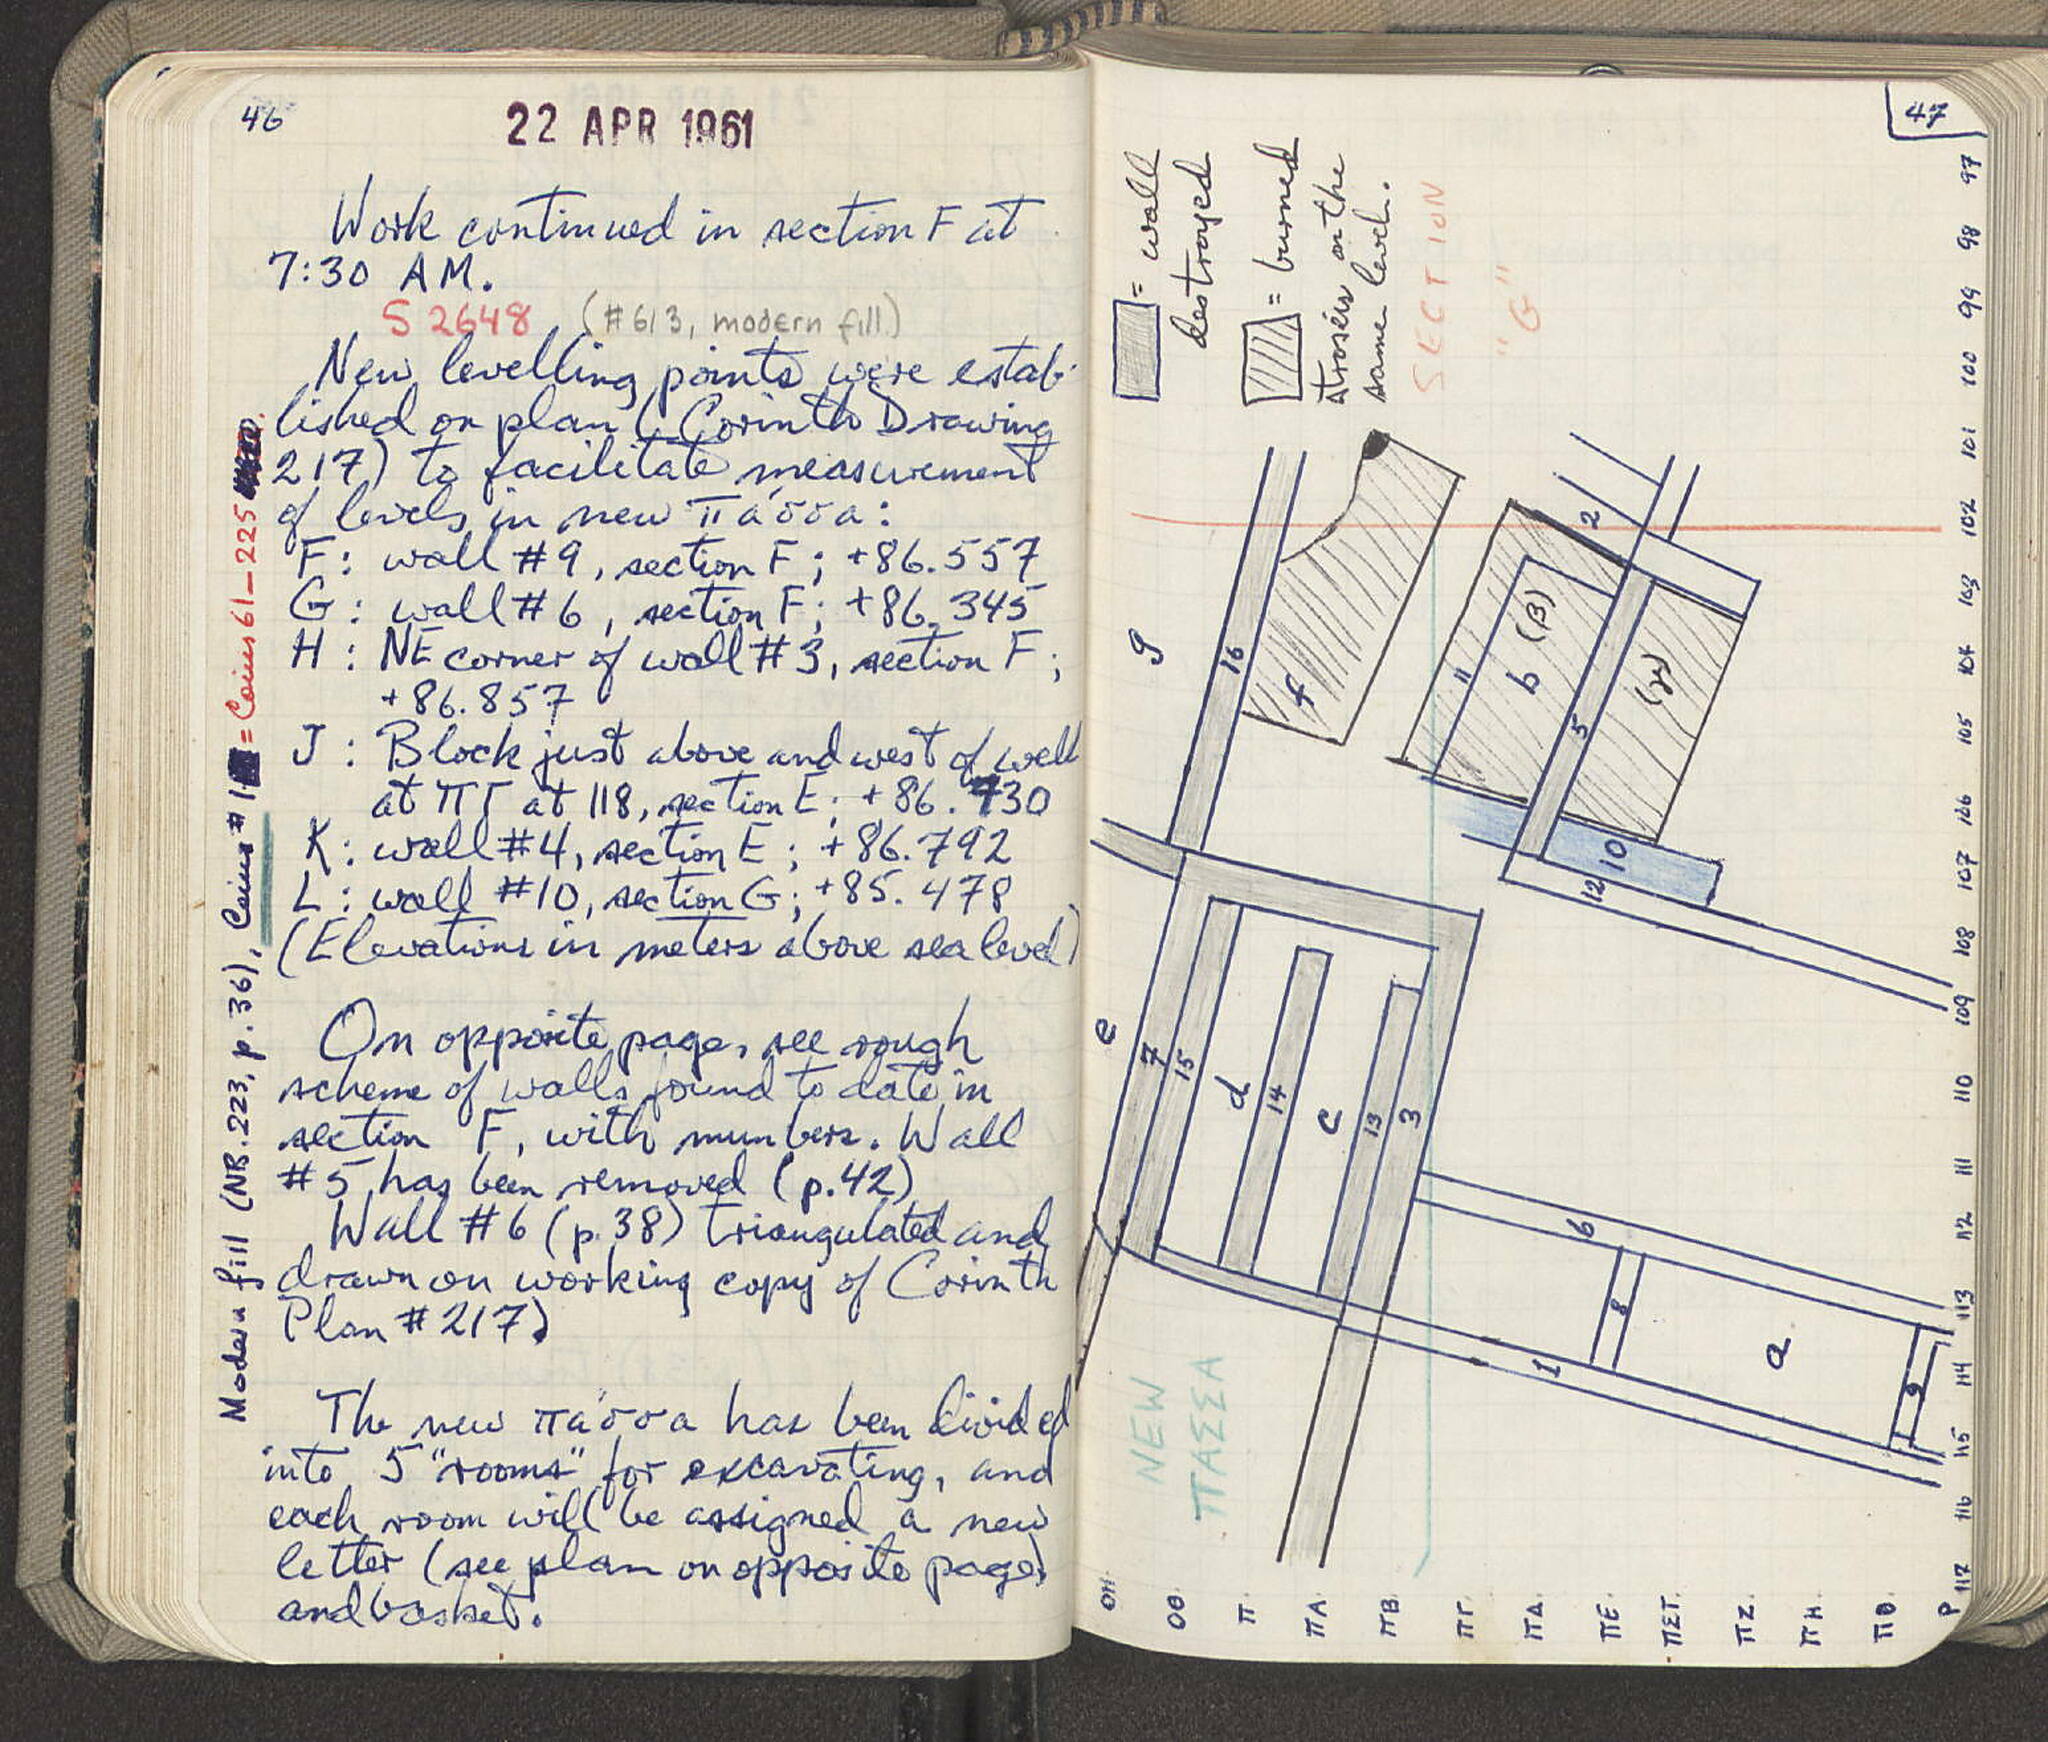 46
22 APR 1961
Work continued in section F at
7:30 AM.
S 2648 (#613, modern fill)
New levelling points were estab-
lished on plan (Corinth Drawing
217) to facilitate measurement
of levels in new πάσσα:
F: wall #9, section F; +86.557
G: wall #6, section F; +86.345
H: NE corner of wall #3, section F;
+86.857
J: Block just above and west of well
at ΠΓ at 118, section E; +86.730
K: wall #4, section E; +86.792
L: wall #10, section G; +85.478
(Elevations in meters above sea level)
On opposite page, see rough
scheme of walls found to date in
section F, with numbers. Wall
#5 has been removed (p.42)
Wall #6 (p.38) triangulated and
drawn on working copy of Corinth
Plan #217)
The new πάσσα has been divided
into 5 "rooms" for excavating, and
each room will be assigned a new
letter (see plan on opposite page)
and basket.
Modern fill (NB.223, p.36), Coins #1 = Coins 61-225
47
= wall
destroyed
= burned
στρῶσις on the
same level.
SECTION
"G"
NEW
ΠΑΣΣΑ
g
16
f
2
11
b (β)
5
(γ)
10
12
e
7
15
d
14
c
13
3
6
8
1
a
9
ΟΗ.
ΟΘ.
Π.
ΠΑ.
ΠΒ.
ΠΓ.
ΠΔ.
ΠΕ.
ΠΣΤ.
ΠΖ.
ΠΗ.
ΠΘ.
Ρ
97
98
99
100
101
102
103
104
105
106
107
108
109
110
111
112
113
114
115
116
117